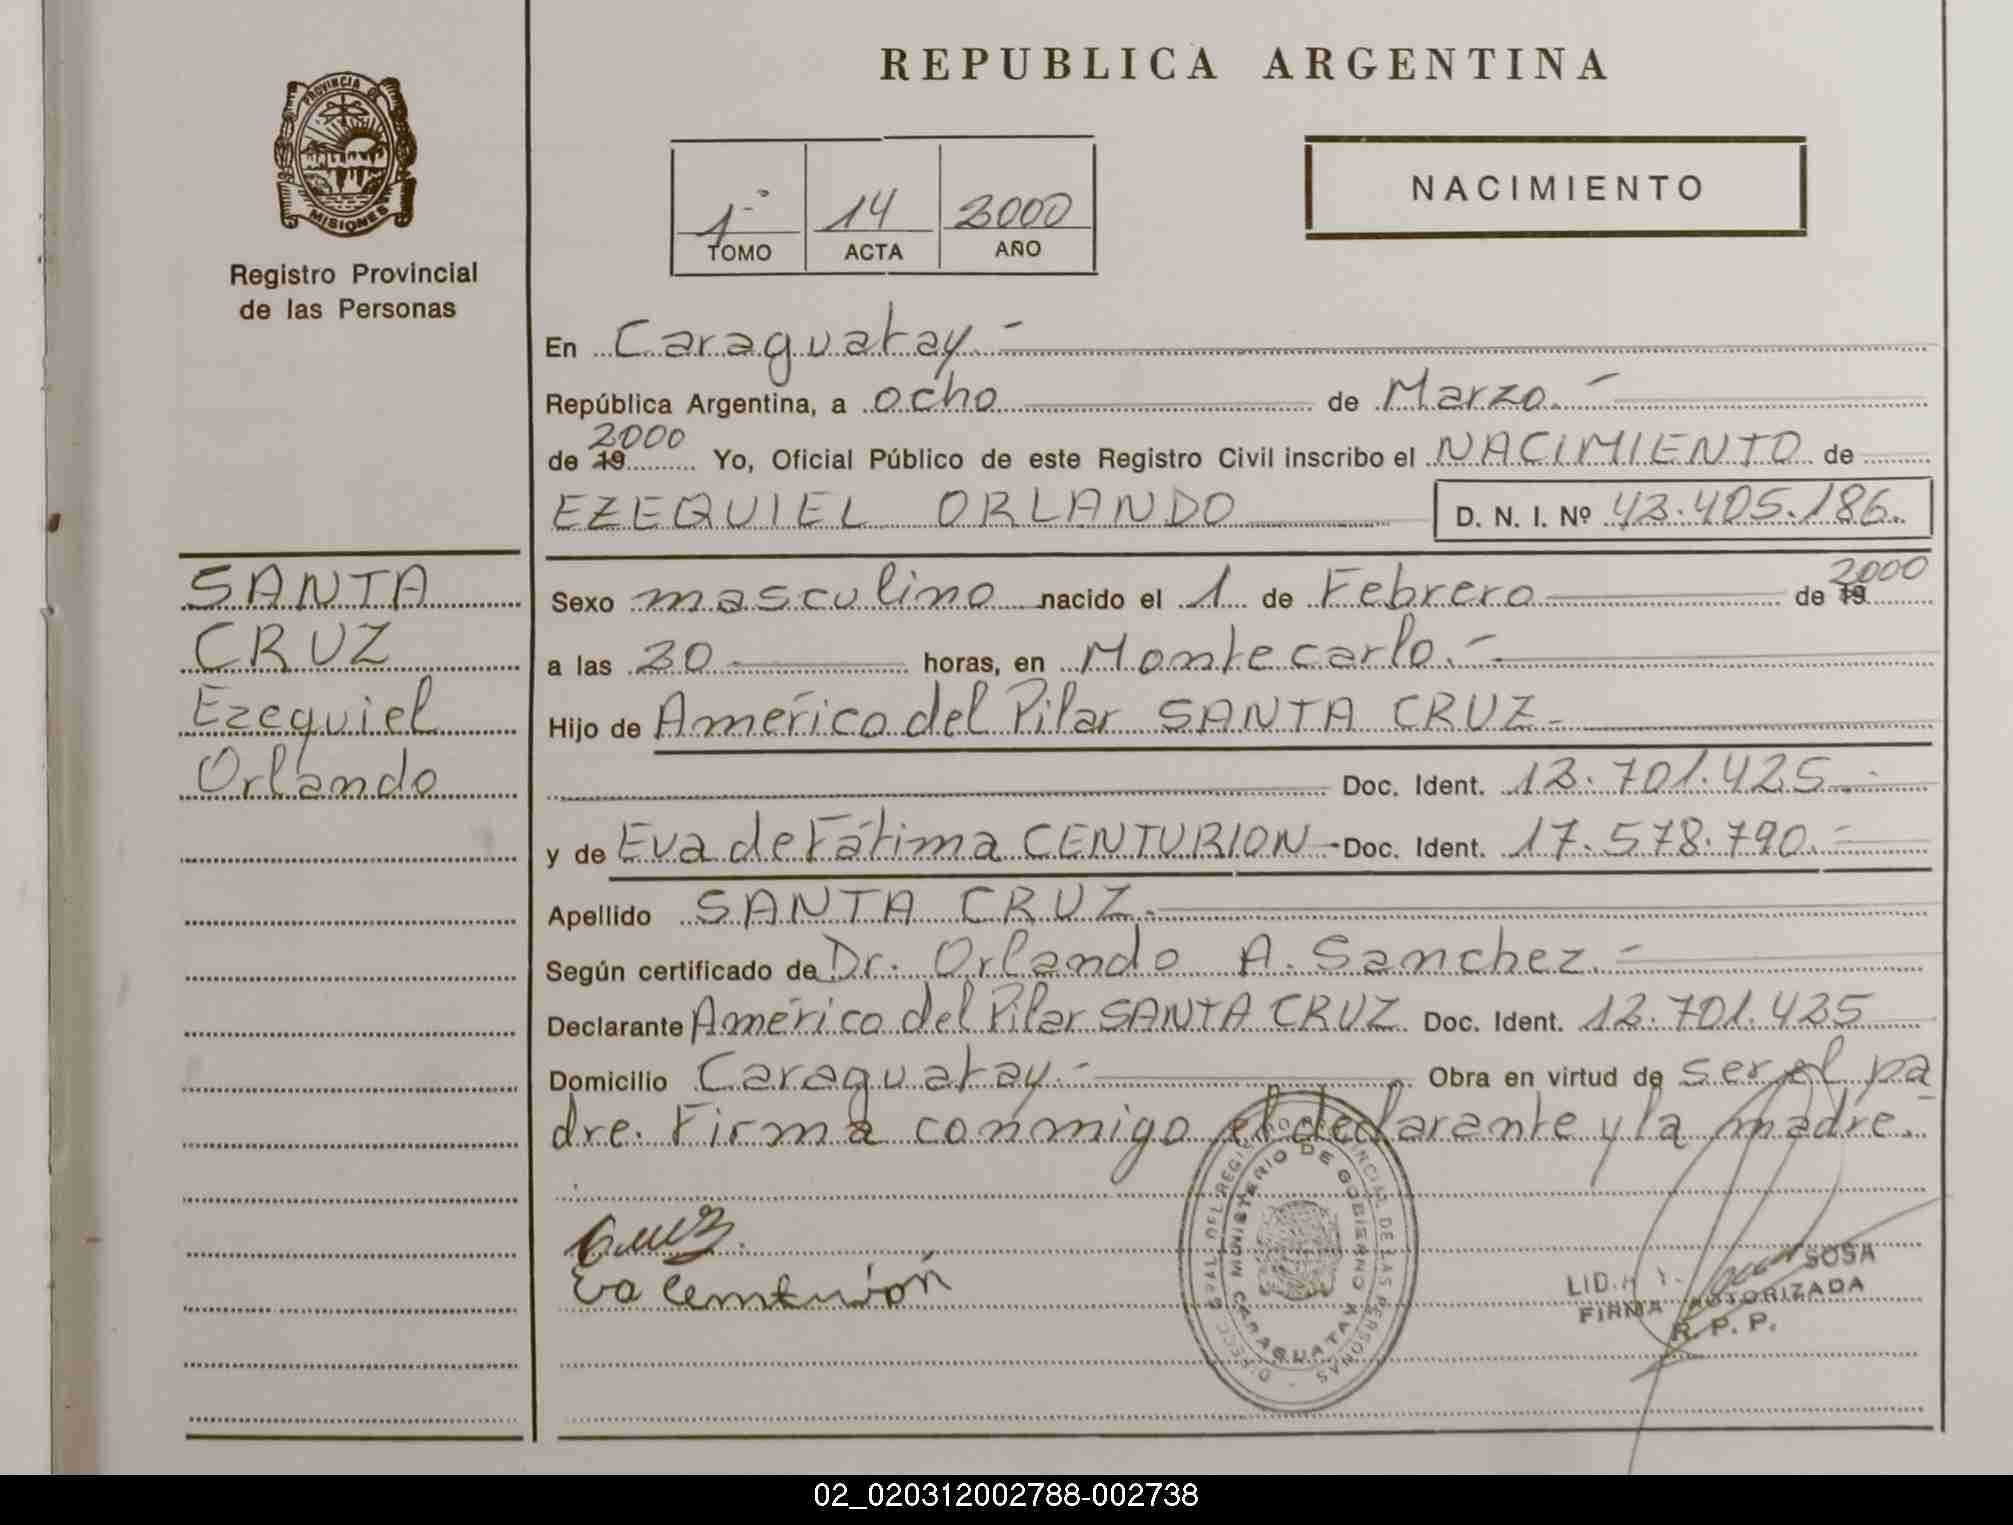 PROVINCIA DE
MISIONES
Registro Provincial
de las Personas
REPUBLICA ARGENTINA
1º 14 2000
TOMO ACTA AÑO
NACIMIENTO
En Caraguatay.-
República Argentina, a ocho de Marzo.-
de 19 2000 Yo, Oficial Público de este Registro Civil inscribo el NACIMIENTO de
EZEQUIEL ORLANDO D. N. I. Nº 42.405.186.
SANTA
CRUZ
Ezequiel
Orlando
Sexo masculino nacido el 1 de Febrero de 19 2000
a las 20 horas, en Montecarlo.-
Hijo de Américo del Pilar SANTA CRUZ.-
Doc. Ident. 12.701.425.-
y de Eva de Fátima CENTURION - Doc. Ident. 17.578.790.-
Apellido SANTA CRUZ.-
Según certificado de Dr. Orlando A. Sanchez.-
Declarante Américo del Pilar SANTA CRUZ Doc. Ident. 12.701.425
Domicilio Caraguatay.- Obra en virtud de ser el pa
dre. Firma conmigo el declarante y la madre.
Cruz.
Eva Centurión
DIRECC. GRAL. DEL REGISTRO PROVINCIAL DE LAS PERSONAS
MINISTERIO DE GOBIERNO
CARAGUATAY
SOSA
FIRMA AUTORIZADA
R. P. P.
02_020312002788-002738